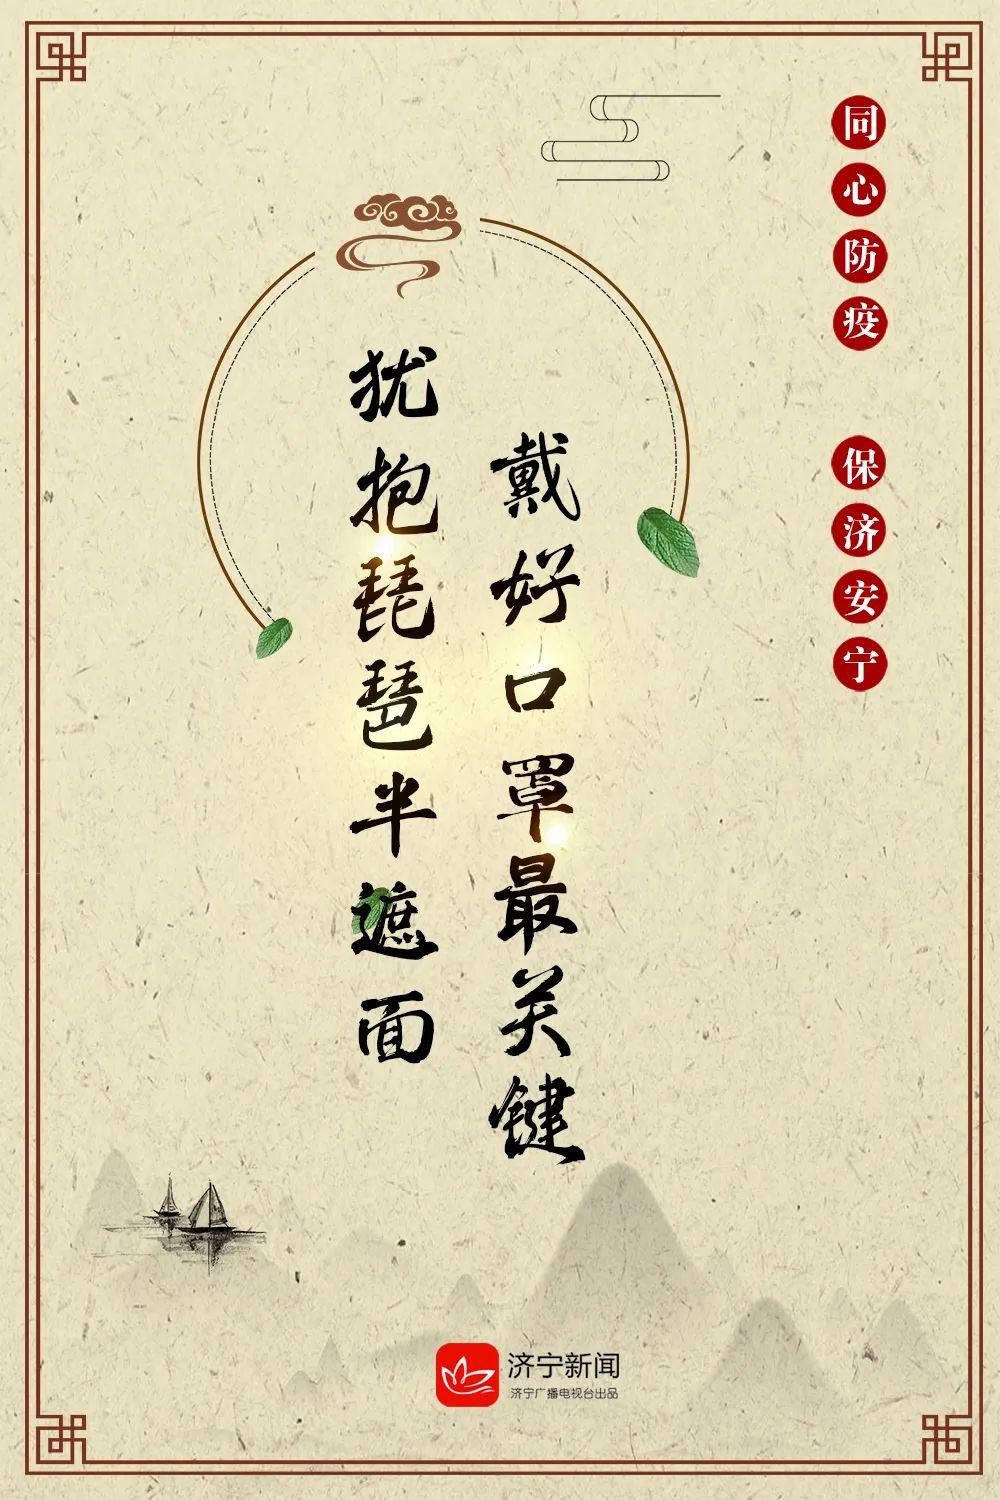 同心防疫 保济安宁
犹抱琵琶半遮面
戴好口罩最关键
济宁新闻
济宁广播电视台出品